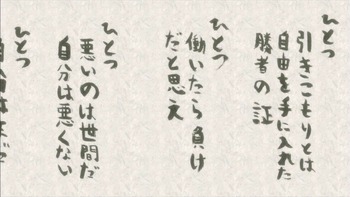 ひとつ
引きこもりとは
自由を手に入れた
勝者の証
ひとつ
働いたら負け
だと思え
ひとつ
悪いのは世間だ
自分は悪くない
ひとつ